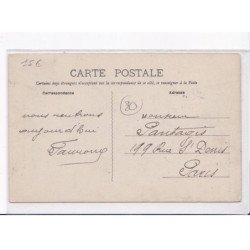 15€
CARTE POSTALE
Certains pays étrangers n'acceptent pas la correspondance de ce côté, se renseigner à la Poste
Correspondance
Adresse
80
nous rentrons
aujourd'hui
Monsieur
Pantazis
199 Rue St Denis
Paris